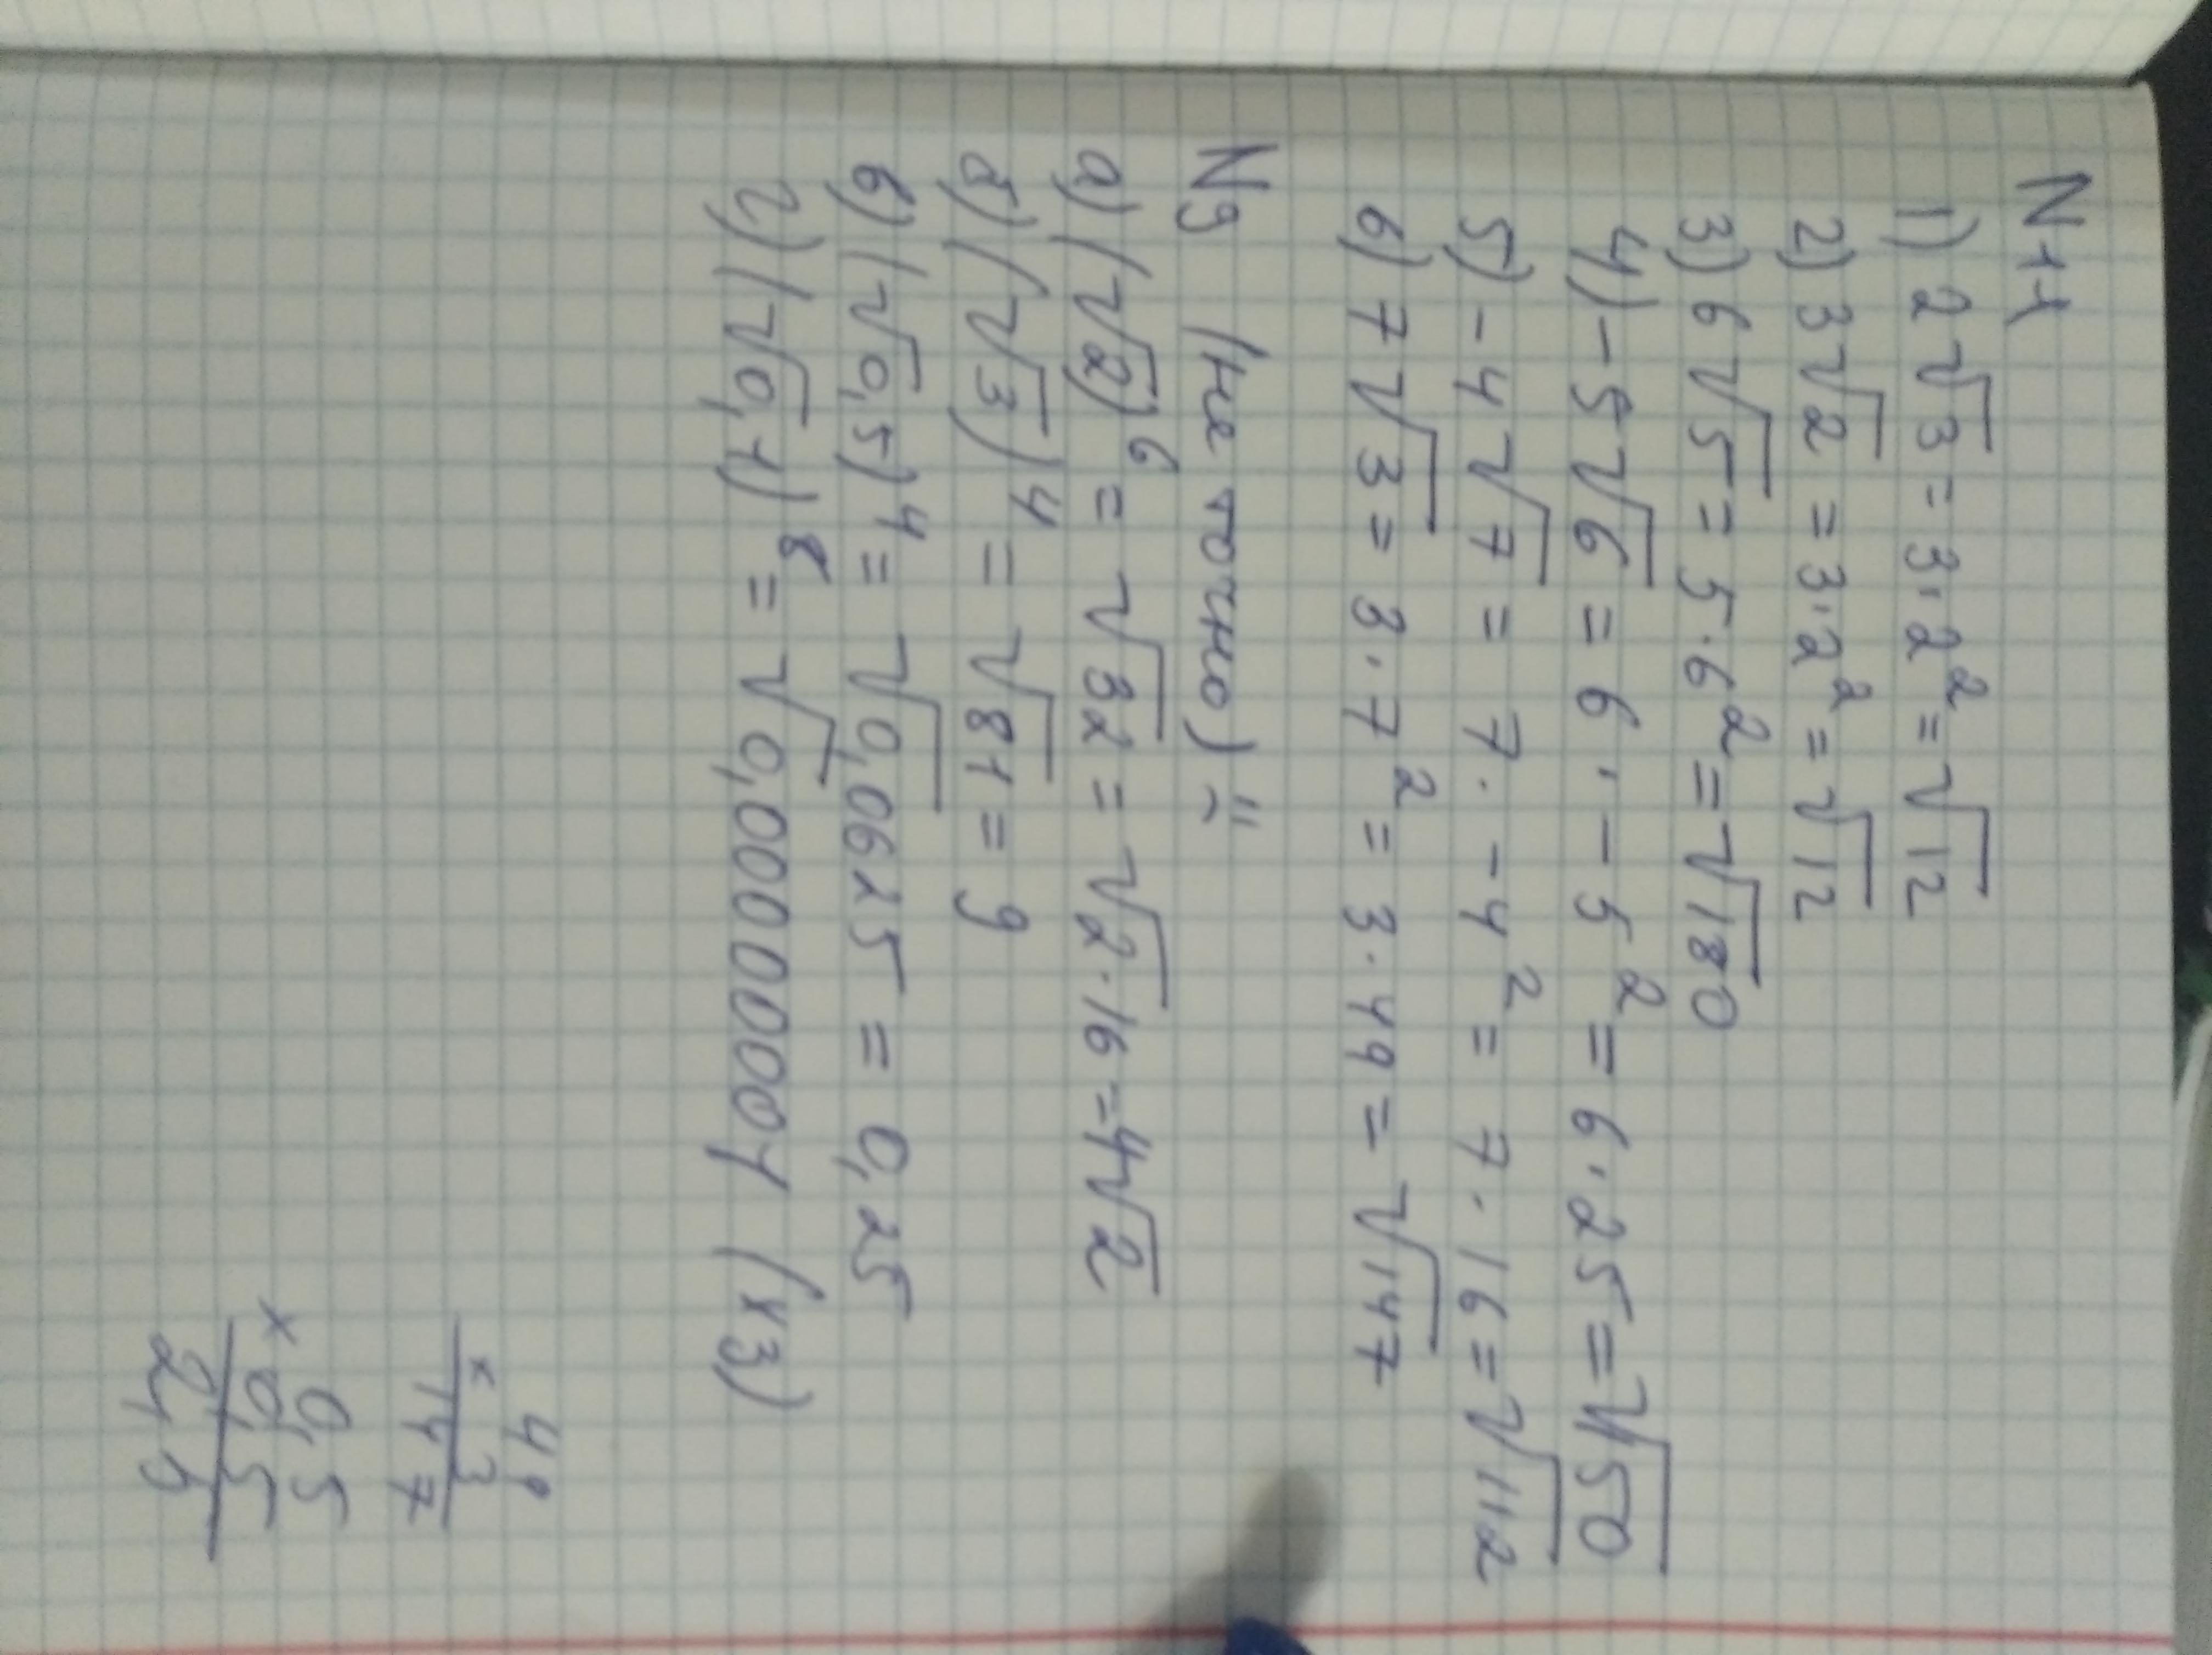 N11
1) 2√3 = 3·2² = √12
2) 3√2 = 3·2² = √12
3) 6√5 = 5·6² = √180
4) -5√6 = 6·-5² = 6·25 = √50
5) -4√7 = 7·-4² = 7·16 = √112
6) 7√3 = 3·7² = 3·49 = √147
N9 (не точно) ..^
а) (√2)⁶ = √32 = √2·16 = 4√2
б) (√3)⁴ = √81 = 9
в) (√0,5)⁴ = √0,0625 = 0,25
г) (√0,1)⁸ = √0,00000001 (хз)
49
× 3
147
0,5
× 0,5
2,5